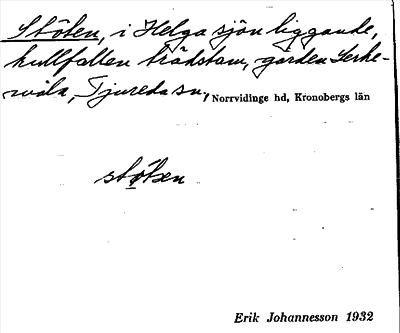 Stöten, i Helga sjön liggande,
kullfallen trädstam, gården Serke-
måla, Tjureda sn, Norrvidinge hd, Kronobergs län
stötẹn
Erik Johannesson 1932